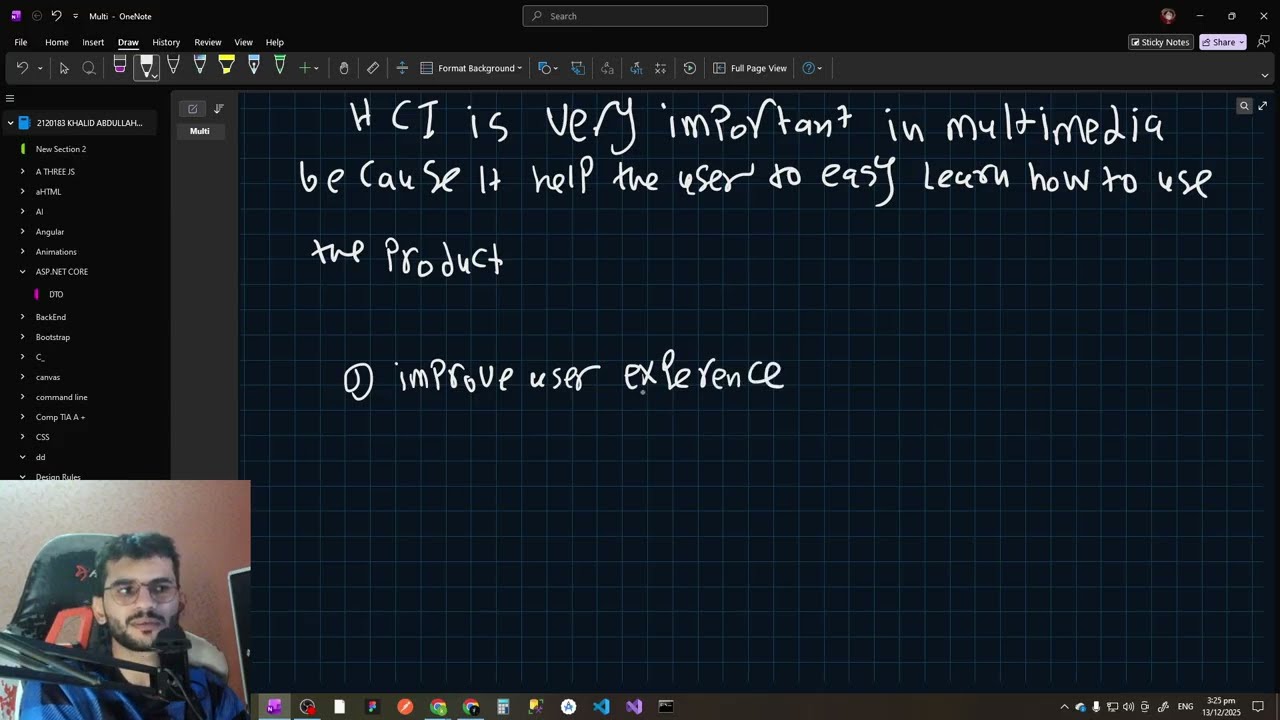 Multi - OneNote
Search
File Home Insert Draw History Review View Help
Sticky Notes
Share
Format Background
Full Page View
2120183 KHALID ABDULLAH...
Multi
New Section 2
A THREE JS
aHTML
AI
Angular
Animations
ASP.NET CORE
DTO
BackEnd
Bootstrap
C_
canvas
command line
Comp TIA A +
CSS
dd
Design Rules
HCI is very important in multimedia
because It help the user to easy Learn how to use
the Product
① improve user experence
ENG
3:25 pm
13/12/2025